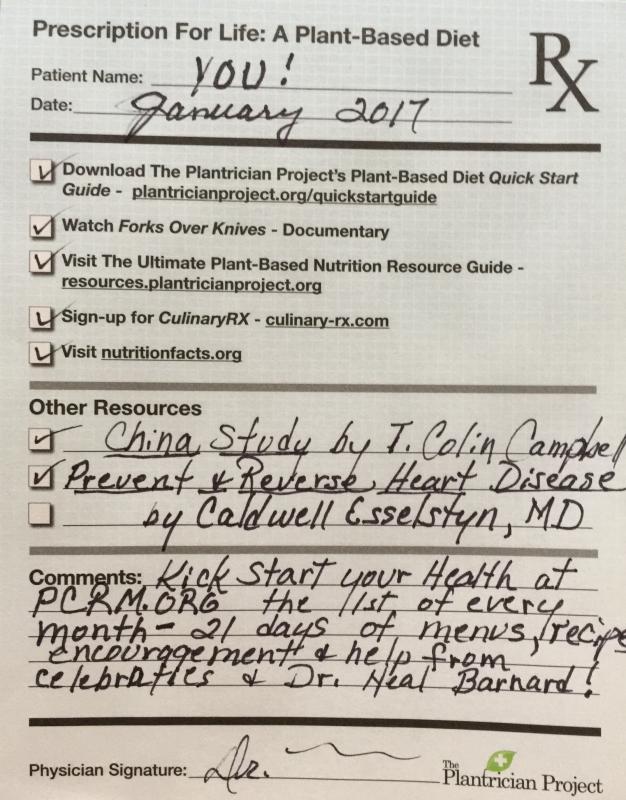 Prescription For Life: A Plant-Based Diet
Rx
Patient Name: YOU!
Date: January 2017
Download The Plantrician Project's Plant-Based Diet Quick Start
Guide - plantricianproject.org/quickstartguide
Watch Forks Over Knives - Documentary
Visit The Ultimate Plant-Based Nutrition Resource Guide -
resources.plantricianproject.org
Sign-up for CulinaryRX - culinary-rx.com
Visit nutritionfacts.org
Other Resources
China Study by T. Colin Campbell
Prevent & Reverse Heart Disease
by Caldwell Esselstyn, MD
Comments: Kick Start your Health at
PCRM.ORG the 1st of every
month - 21 days of menus, recipe
encouragement & help from
celebrities & Dr. Neal Barnard!
Physician Signature: Dr.
The
Plantrician Project